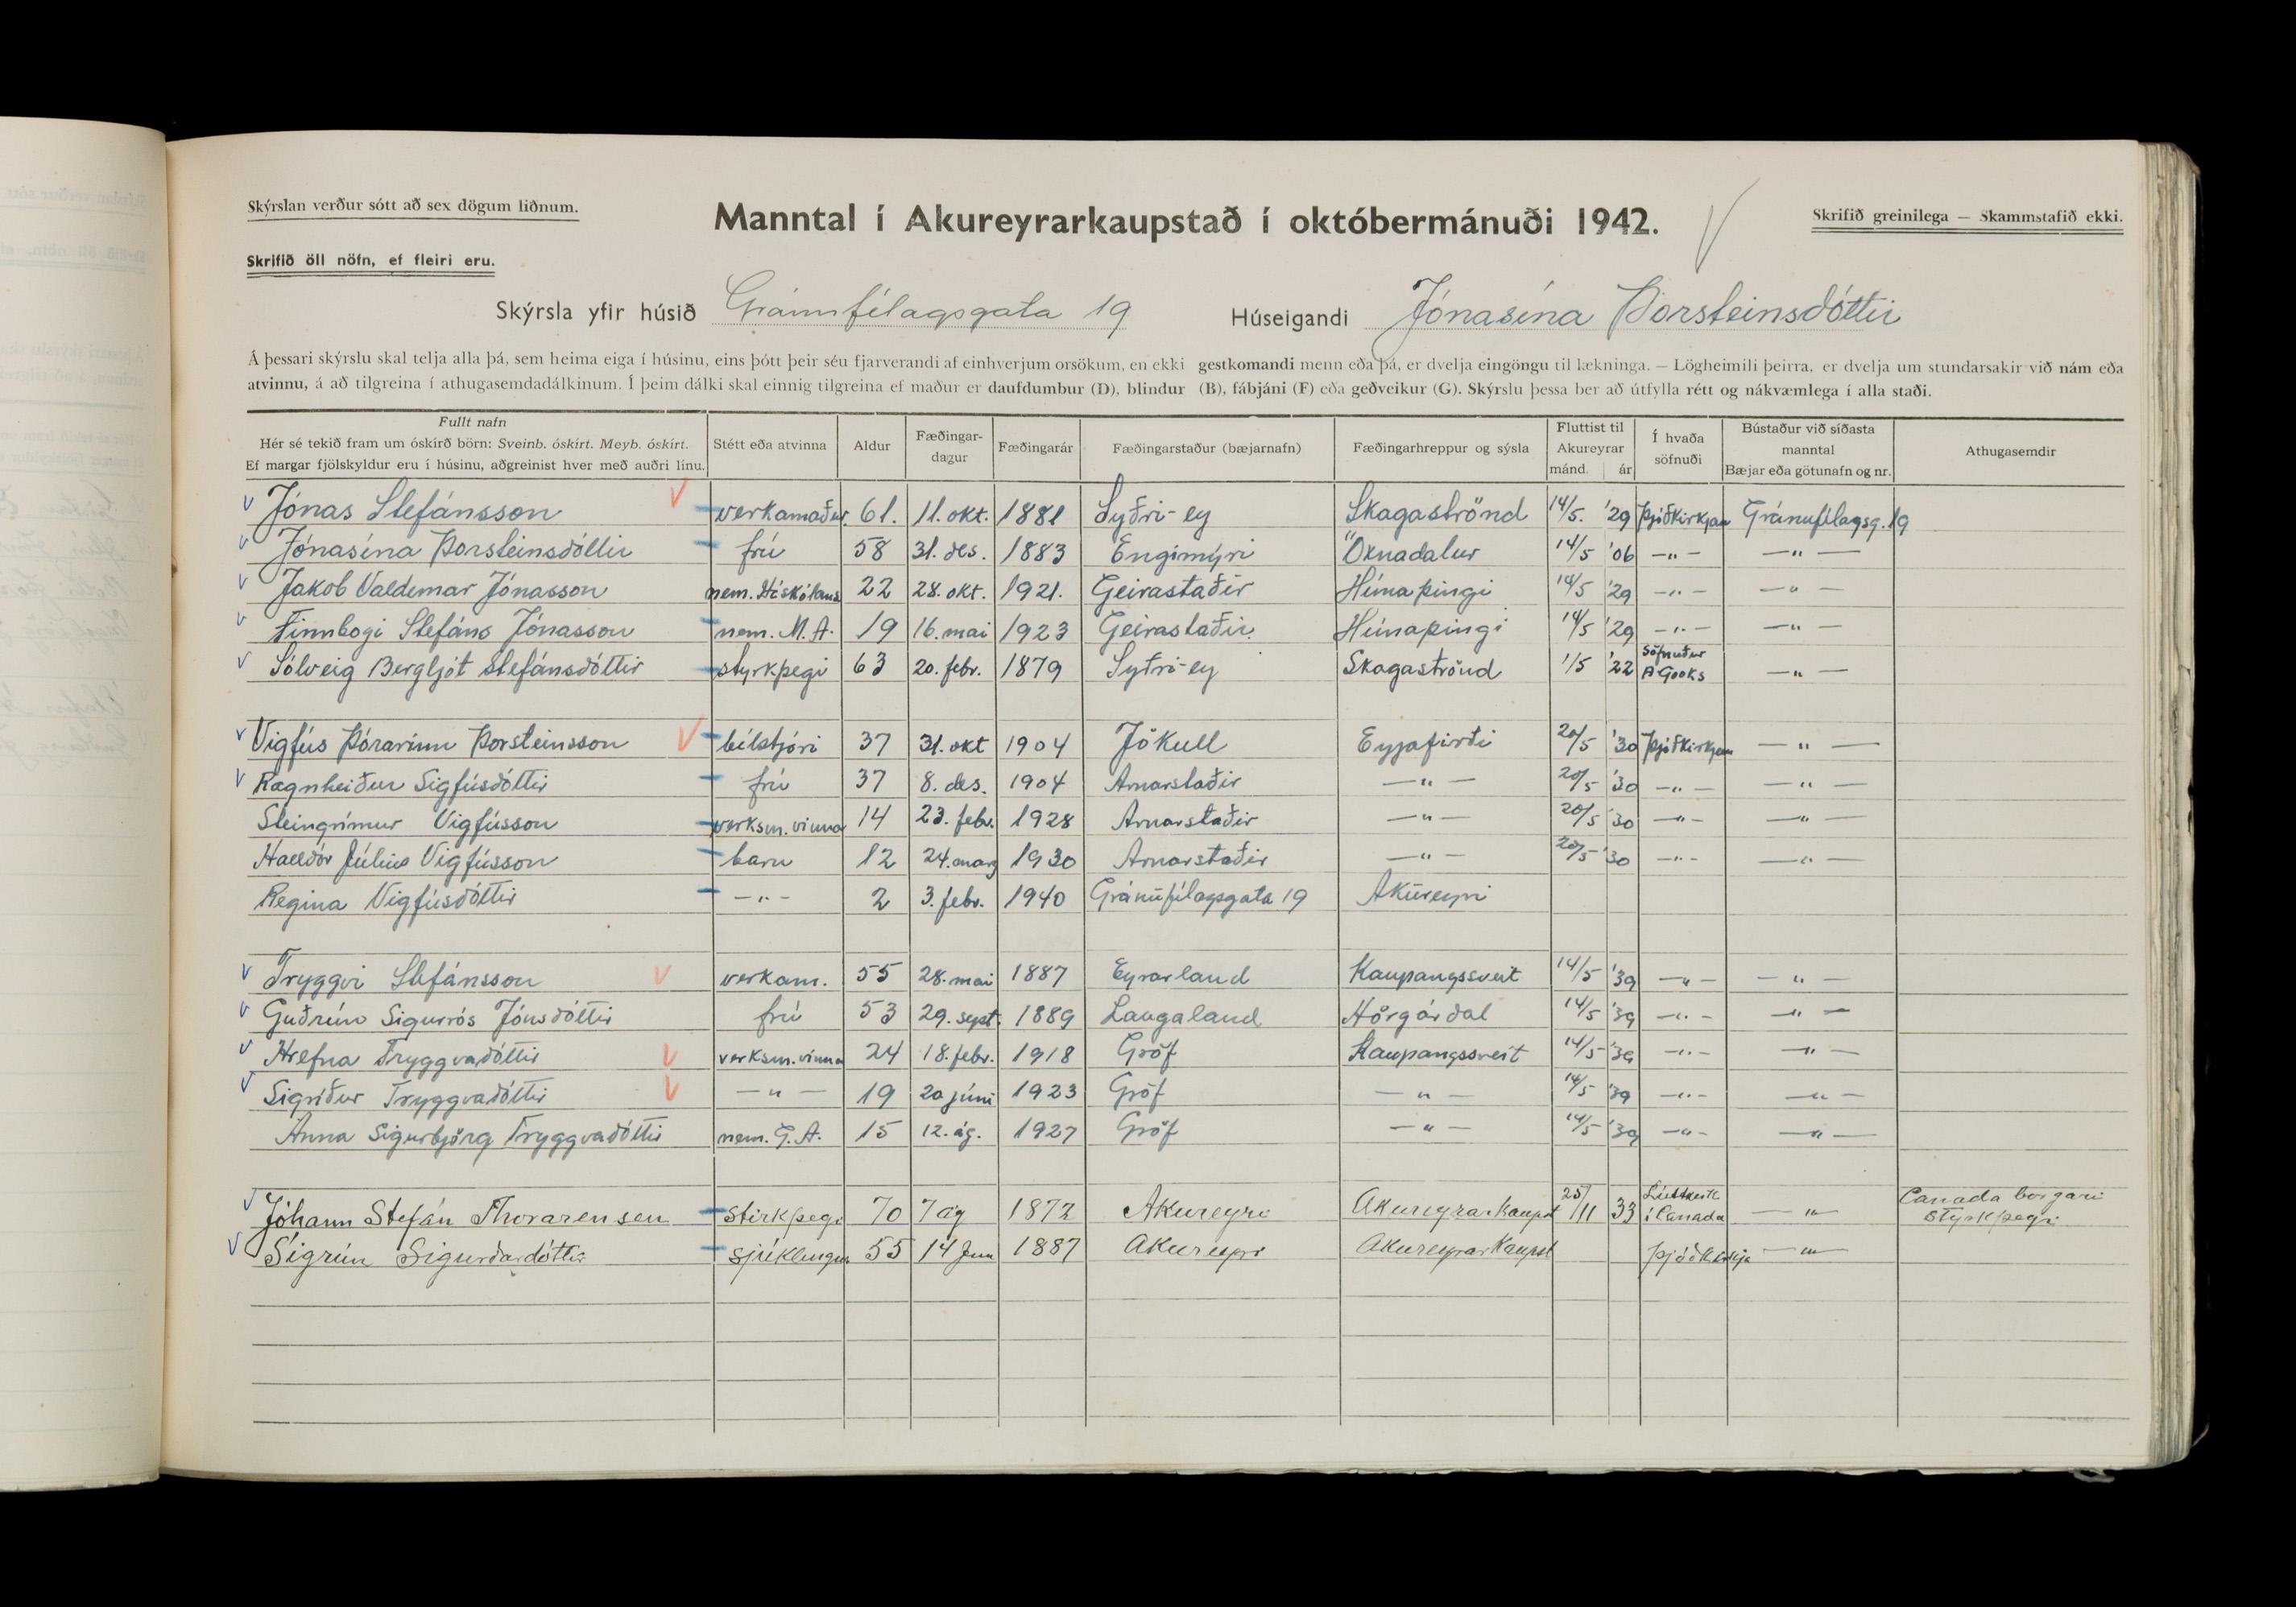 Skýrslan verður sótt að sex dögum liðnum.
Manntal í Akureyrarkaupstað í októbermánuði 1942.
Skrifið greinilega — Skammstafið ekki.
Skrifið öll nöfn, ef fleiri eru.
Skýrsla yfir húsið Gránufélagsgata 19 Húseigandi Jónasína Þorsteinsdóttir
Á þessari skýrslu skal telja alla þá, sem heima eiga í húsinu, eins þótt þeir séu fjarverandi af einhverjum orsökum, en ekki gestkomandi menn eða þá, er dvelja eingöngu til lækninga. — Lögheimili þeirra, er dvelja um stundarsakir við nám eða
atvinnu, á að tilgreina í athugasemdadálkinum. Í þeim dálki skal einnig tilgreina ef maður er daufdumbur (D), blindur (B), fábjáni (F) eða geðveikur (G). Skýrslu þessa ber að útfylla rétt og nákvæmlega í alla staði.
Fullt nafn
Hér sé tekið fram um óskírð börn: Sveinb. óskírt. Meyb. óskírt.
Ef margar fjölskyldur eru í húsinu, aðgreinist hver með auðri línu.
Stétt eða atvinna
Aldur
Fæðingar-
dagur
Fæðingarár
Fæðingarstaður (bæjarnafn)
Fæðingarhreppur og sýsla
Fluttist til
Akureyrar
mánd. ár
Í hvaða
söfnuði
Bústaður við síðasta
manntal
Bæjar eða götunafn og nr.
Athugasemdir
Jónas Stefánsson verkamaður 61. 11. okt. 1881 Syðri-ey Skagaströnd 14/5. '29 Þjóðkirkjan Gránufélagsg. 19
Jónasína Þorsteinsdóttir frú 58 31. des. 1883 Engimýri Öxnadalur 14/5 '06 —„— —„—
Jakob Valdemar Jónasson nem. Háskólans 22 28. okt. 1921. Geirastaðir Húnaþingi 14/5 '29 —„— —„—
Finnbogi Stefáns Jónasson nem. M. A. 19 16. mai 1923 Geirastaðir Húnaþingi 14/5 '29 —„— —„—
Sólveig Bergljót Stefánsdóttir styrkþegi 63 20. febr. 1879 Syðri-ey Skagaströnd 1/5 '22 Söfnuður A Gooks —„—
Vigfús Þórarinn Þorsteinsson bílstjóri 37 31. okt 1904 Jökull Eyjafirði 20/5 '30 Þjóðkirkjan —„—
Ragnheiður Sigfúsdóttir frú 37 8. des. 1904 Arnarstaðir —„— 20/5 '30 —„— —„—
Steingrímur Vigfússon verksm. vinna 14 23. febr. 1928 Arnarstaðir —„— 20/5 '30 —„— —„—
Halldór Júlíus Vigfússon barn 12 24. marz 1930 Arnarstaðir —„— 20/5 '30 —„— —„—
Regina Vigfúsdóttir —„— 2 3. febr. 1940 Gránufélagsgata 19 Akureyri
Tryggvi Stefánsson verkam. 55 28. mai 1887 Eyrarland Kaupangssveit 14/5 '39 —„— —„—
Guðrún Sigurrós Jónsdóttir frú 53 29. sept. 1889 Laugaland Hörgárdal 14/5 '39 —„— —„—
Hrefna Tryggvadóttir verksm. vinna 24 18. febr. 1918 Gröf Kaupangssveit 14/5 '39 —„— —„—
Sigríður Tryggvadóttir —„— 19 20 júni 1923 Gröf —„— 14/5 '39 —„— —„—
Anna Sigurbjörg Tryggvadóttir nem. G. A. 15 12. ág. 1927 Gröf —„— 14/5 '39 —„— —„—
Jóhann Stefán Thorarensen stirkþegi 70 7 ág 1872 Akureyri Akureyrarkaupst 25/11 33 í Canada —„— Canada borgari
styrkþegi
Sigrún Sigurðardóttir sjúklingur 55 14 Jun 1887 Akureyri Akureyrarkaupst Þjóðkirkja —„—